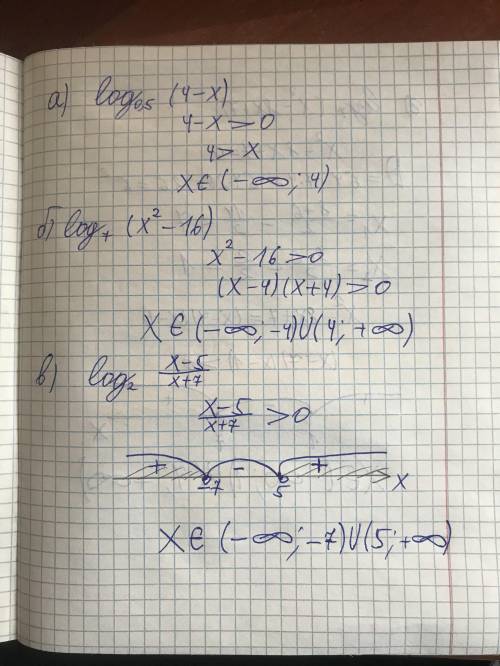 а) log₀,₅ (4-x)
4-x>0
4>x
x∈(-∞; 4)
б) log₇ (x²-16)
x²-16>0
(x-4)(x+4)>0
x∈(-∞,-4)∪(4;+∞)
в) log₂ (x-5)/(x+7)
(x-5)/(x+7) >0
+ - +
-7 5 x
x∈(-∞;-7)∪(5;+∞)